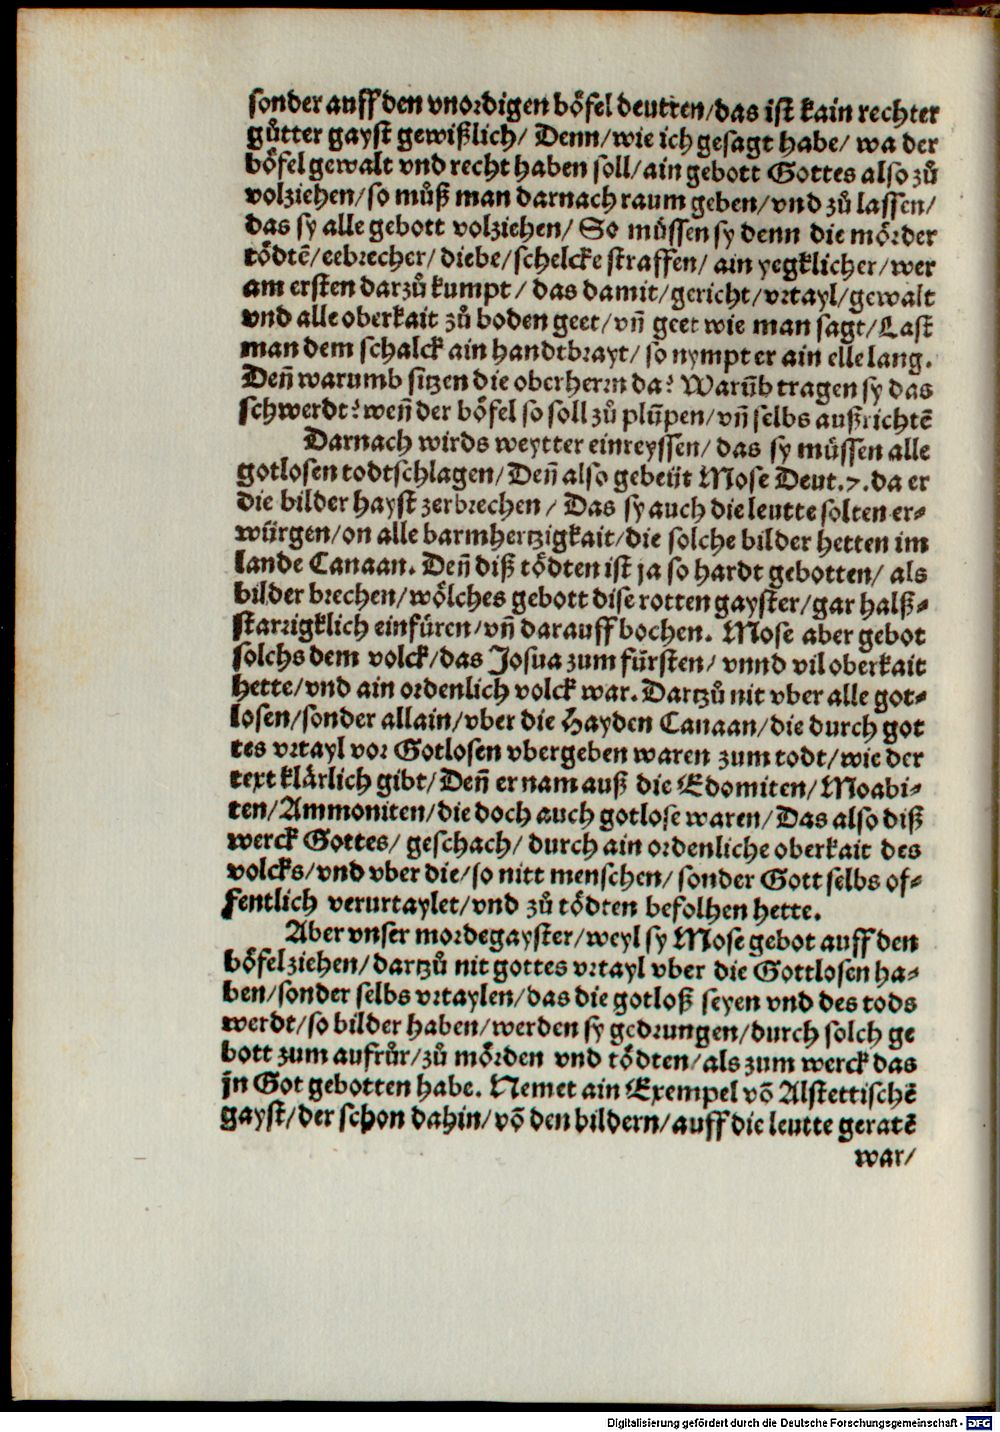 sonder auff den vnordigen böfel deutten/das ist kain rechter
gůtter gayst gewißlich/ Denn/wie ich gesagt habe/ wa der
böfel gewalt vnd recht haben soll/ain gebott Gottes also zů
volziehen/so můß man darnach raum geben/vnd zů lassen/
das sy alle gebott volziehen/ So müssen sy denn die mörder
tödtē/eebrecher/diebe/schelcke straffen/ ain yegklicher/wer
am ersten darzů kumpt/ das damit/gericht/vrtayl/gewalt
vnd alle oberkait zů boden geet/vñ geet wie man sagt/Last
man dem schalck ain handtbrayt/ so nympt er ain elle lang.
Deñ warumb sitzen die oberherrn da? Warũb tragen sy das
schwerdt? weñ der böfel so soll zů plũpen/vñ selbs außrichtē
Darnach wirds weytter einreyssen/ das sy müssen alle
gotlosen todtschlagen/Deñ also gebeüt Mose Deut.7.da er
die bilder hayst zerbrechen/ Das sy auch die leutte solten er⸗
würgen/on alle barmhertzigkait/die solche bilder hetten im
lande Canaan. Deñ diß tödten ist ja so hardt gebotten/ als
bilder brechen/wölches gebott dise rotten gayster/gar halß⸗
starrigklich einfüren/vñ darauff bochen. Mose aber gebot
solchs dem volck/das Josua zum fürsten/ vnnd vil oberkait
hette/vnd ain ordenlich volck war. Dartzů nit vber alle got⸗
losen/sonder allain/vber die Hayden Canaan/die durch got
tes vrtayl vor Gotlosen vbergeben waren zum todt/wie der
text klärlich gibt/Deñ er nam auß die Edomiten/Moabi⸗
ten/Ammoniten/die doch auch gotlose waren/Das also diß
werck Gottes/ geschach/ durch ain ordenliche oberkait des
volcks/vnd vber die/so nitt menschen/sonder Gott selbs of⸗
fentlich verurtaylet/vnd zů tödten befolhen hette.
Aber vnser mordegayster/weyl sy Mose gebot auff den
böfel ziehen/dartzů nit gottes vrtayl vber die Gottlosen ha⸗
ben/sonder selbs vrtaylen/das die gotloß seyen vnd des tods
werdt/so bilder haben/werden sy gedrungen/durch solch ge
bott zum aufrůr/zů mörden vnd tödten/als zum werck das
jn Got gebotten habe. Nemet ain Exempel võ Alstettischē
gayst/der schon dahin/võ den bildern/auff die leutte geratē
war/
Digitalisierung gefördert durch die Deutsche Forschungsgemeinschaft - DFG